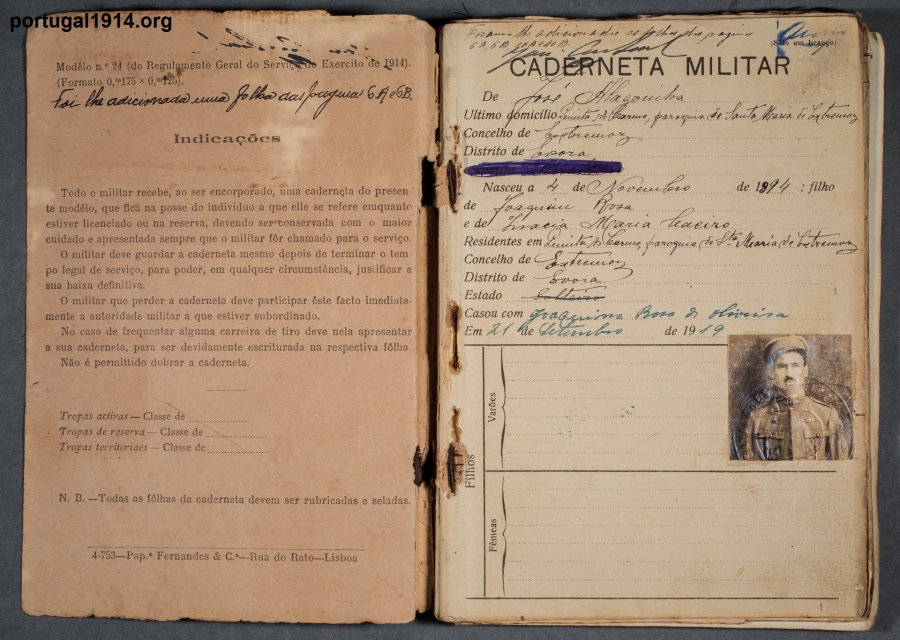 portugal1914.org
Modêlo n.º 24 (do Regulamento Geral do Serviço do Exercito de 1914).
(Formato 0,m175 × 0,m125).
Foi lhe adicionada uma folha das paginas 6A e 6B.
Indicações
Todo o militar recebe, ao ser encorporado, uma caderneta do presen-
te modêlo, que ficá na posse do individuo a que elle se refere emquanto
estiver licenceiado ou na reserva, devendo ser conservada com o maior
cuidado e apresentada sempre que o militar fôr chamado para o serviço.
O militar deve guardar a caderneta mesmo depois de terminar o tem
po legal de serviço, para poder, em qualquer circumstância, justificar a
sua baixa definitiva.
O militar que perder a caderneta deve participar êste facto imediata-
mente a autoridade militar a que estiver subordinado.
No caso de frequentar alguma carreira de tiro deve nela apresentar
a sua caderneta, para ser devidamente escriturada na respectiva fôlha.
Não é permittido dobrar a caderneta.
Tropas activas — Classe de
Tropas de reserva — Classe de
Tropas territoriaes — Classe de
N. B. —Todas as fôlhas da caderneta devem ser rubricadas e seladas.
4-753—Pap.ª Fernandes & C.ª—Rua do Rato—Lisboa
(Selo em branco)
CADERNETA MILITAR
De José Alagoinha
Ultimo domicílio Quinta do Carmo, paroquia de Santa Maria de Extremoz
Concelho de Extremoz
Distrito de Evora
Nasceu a 4 de Novembro de 1894 ; filho
de Joaquim Rosa
e de Gracia Maria Caeiro
Residentes em Quinta do Carmo, paroquia de Sta Maria de Extremoz
Concelho de Extremoz
Distrito de Evora
Estado Solteiro
Casou com Joaquina Rosa de Oliveira
Em 21 de Setembro de 1919
Filhos
Varões
Fêmeas
1